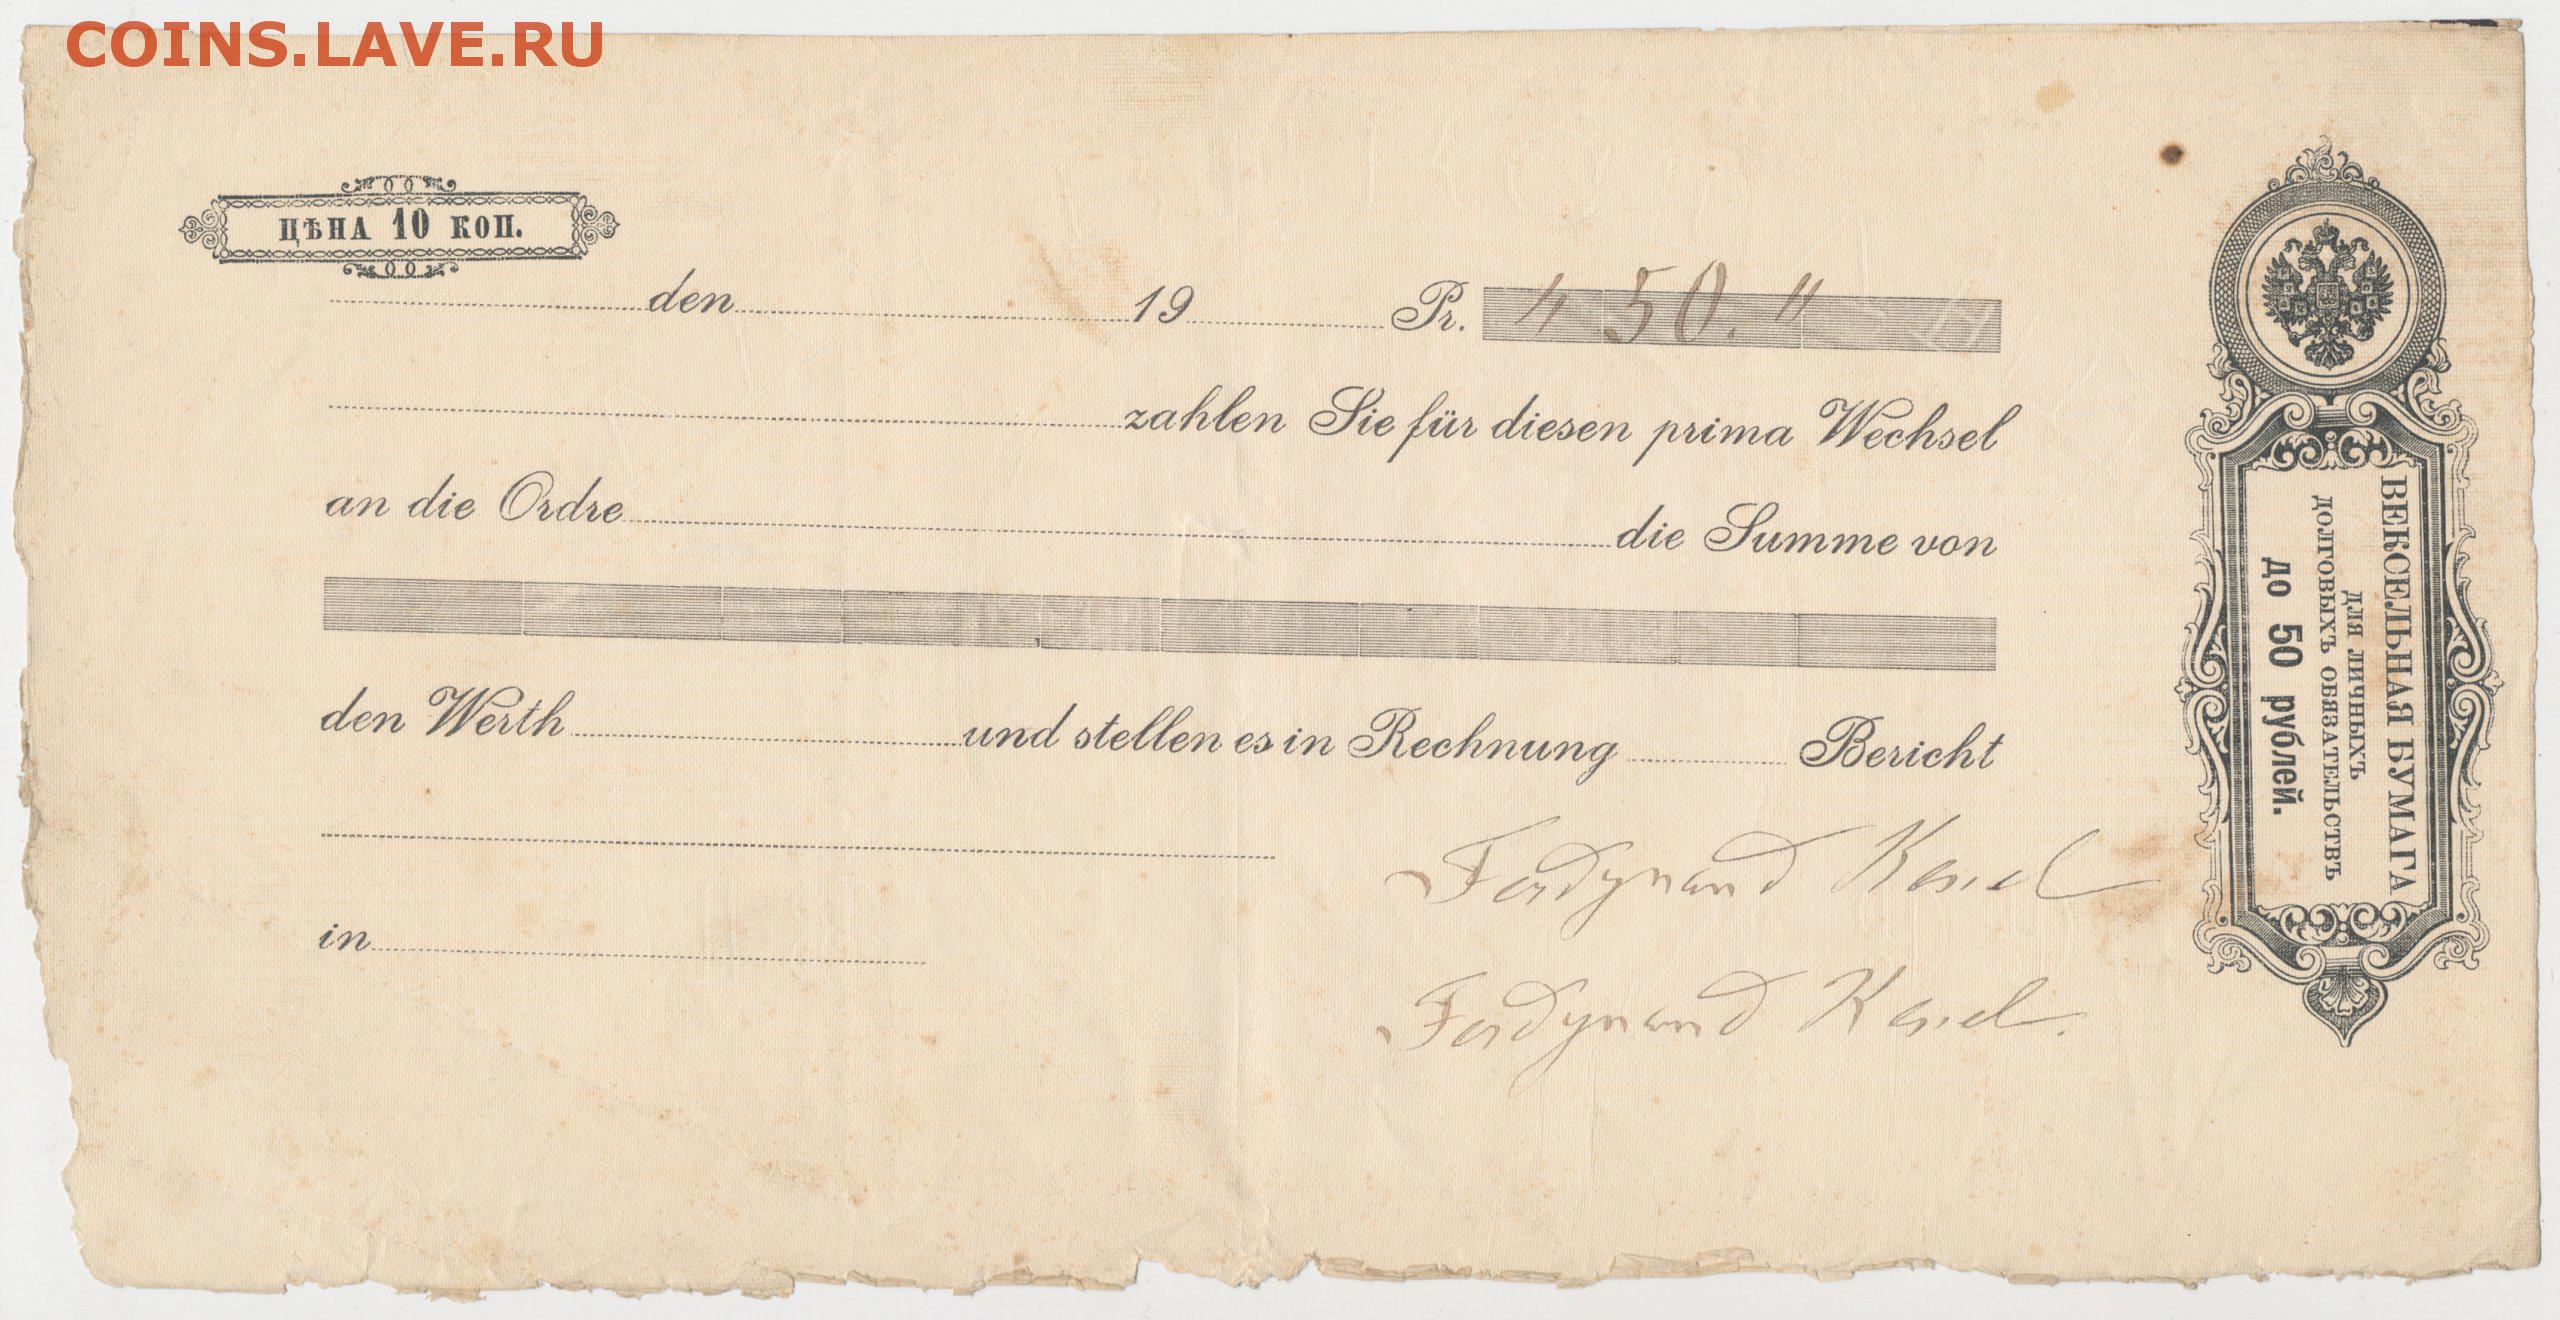 COINS.LAVE.RU
ЦѢНА 10 КОП.
den 19 Pr. 450."
zahlen Sie für diesen prima Wechsel
an die Ordre die Summe von
den Werth und stellen es in Rechnung Bericht
in
Ferdynand
Ferdynand
ВЕКСЕЛЬНАЯ БУМАГА
ДЛЯ ЛИЧНЫХЪ
ДОЛГОВЫХЪ ОБЯЗАТЕЛЬСТВЪ
до 50 рублей.